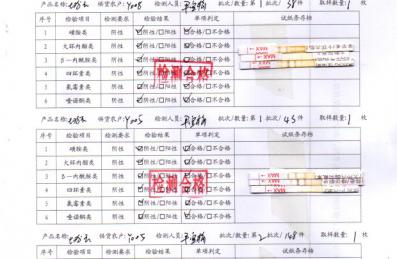 产品名称: 供货农户: Y005 检测人员: 批次/数量:第1批次/58件 取样数量:1枚
序号 检验项目 检测要求 检验结果 单项判定 试纸条存档
1 磺胺类 阴性 ☑阴性/□阳性 ☑合格/□不合格
2 大环内酯类 阴性 ☑阴性/□阳性 ☑合格/□不合格
3 β-内酰胺类 阴性 ☑阴性/□阳性 ☑合格/□不合格
4 四环素类 阴性 ☑阴性/□阳性 ☑合格/□不合格
5 氟霉素类 阴性 ☑阴性/□阳性 ☑合格/□不合格
6 喹诺酮类 阴性 ☑阴性/□阳性 ☑合格/□不合格
检测合格
MAX
MAX
产品名称: 供货农户: Y005 检测人员: 批次/数量:第1批次/45件 取样数量:1枚
序号 检验项目 检测要求 检验结果 单项判定 试纸条存档
1 磺胺类 阴性 ☑阴性/□阳性 ☑合格/□不合格
2 大环内酯类 阴性 ☑阴性/□阳性 ☑合格/□不合格
3 β-内酰胺类 阴性 ☑阴性/□阳性 ☑合格/□不合格
4 四环素类 阴性 ☑阴性/□阳性 ☑合格/□不合格
5 氟霉素类 阴性 ☑阴性/□阳性 ☑合格/□不合格
6 喹诺酮类 阴性 ☑阴性/□阳性 ☑合格/□不合格
检测合格
MAX
MAX
产品名称: 供货农户: Y005 检测人员: 批次/数量:第2批次/148件 取样数量:1枚
序号 检验项目 检测要求 检验结果 单项判定 试纸条存档